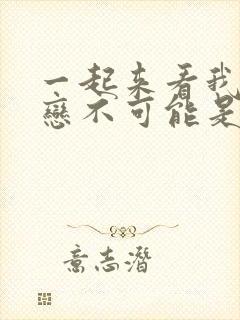 一起来看我
戀不可能是
意志潛